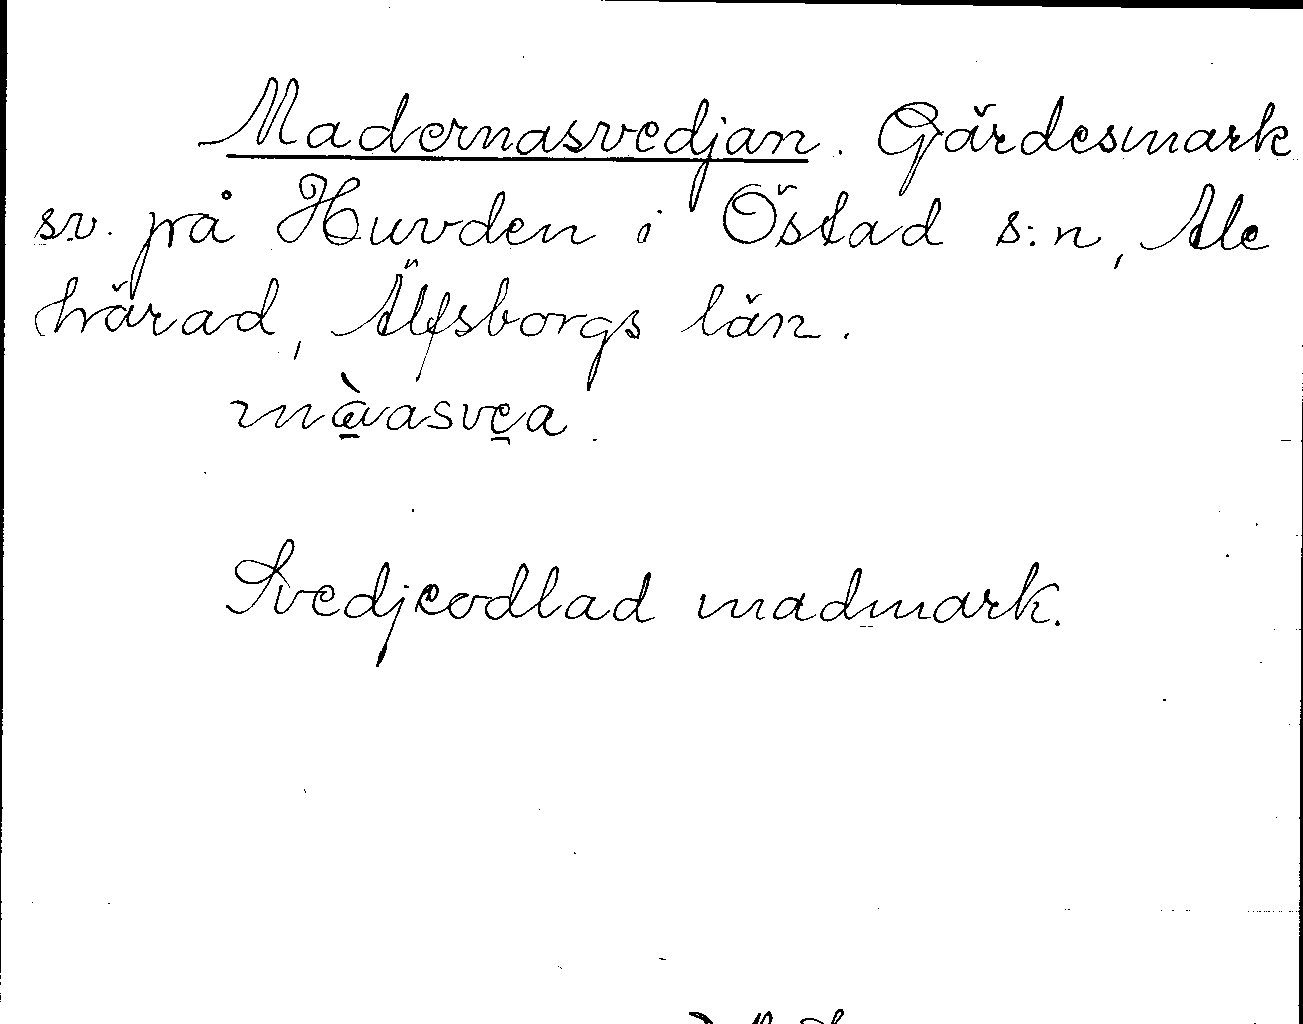 Madernasvedjan. Gärdesmark
sv. på Huvden i Östad s:n, Ale
härad, Älfsborgs län.
mà̱vasve̱a.
Svedjeodlad madmark.